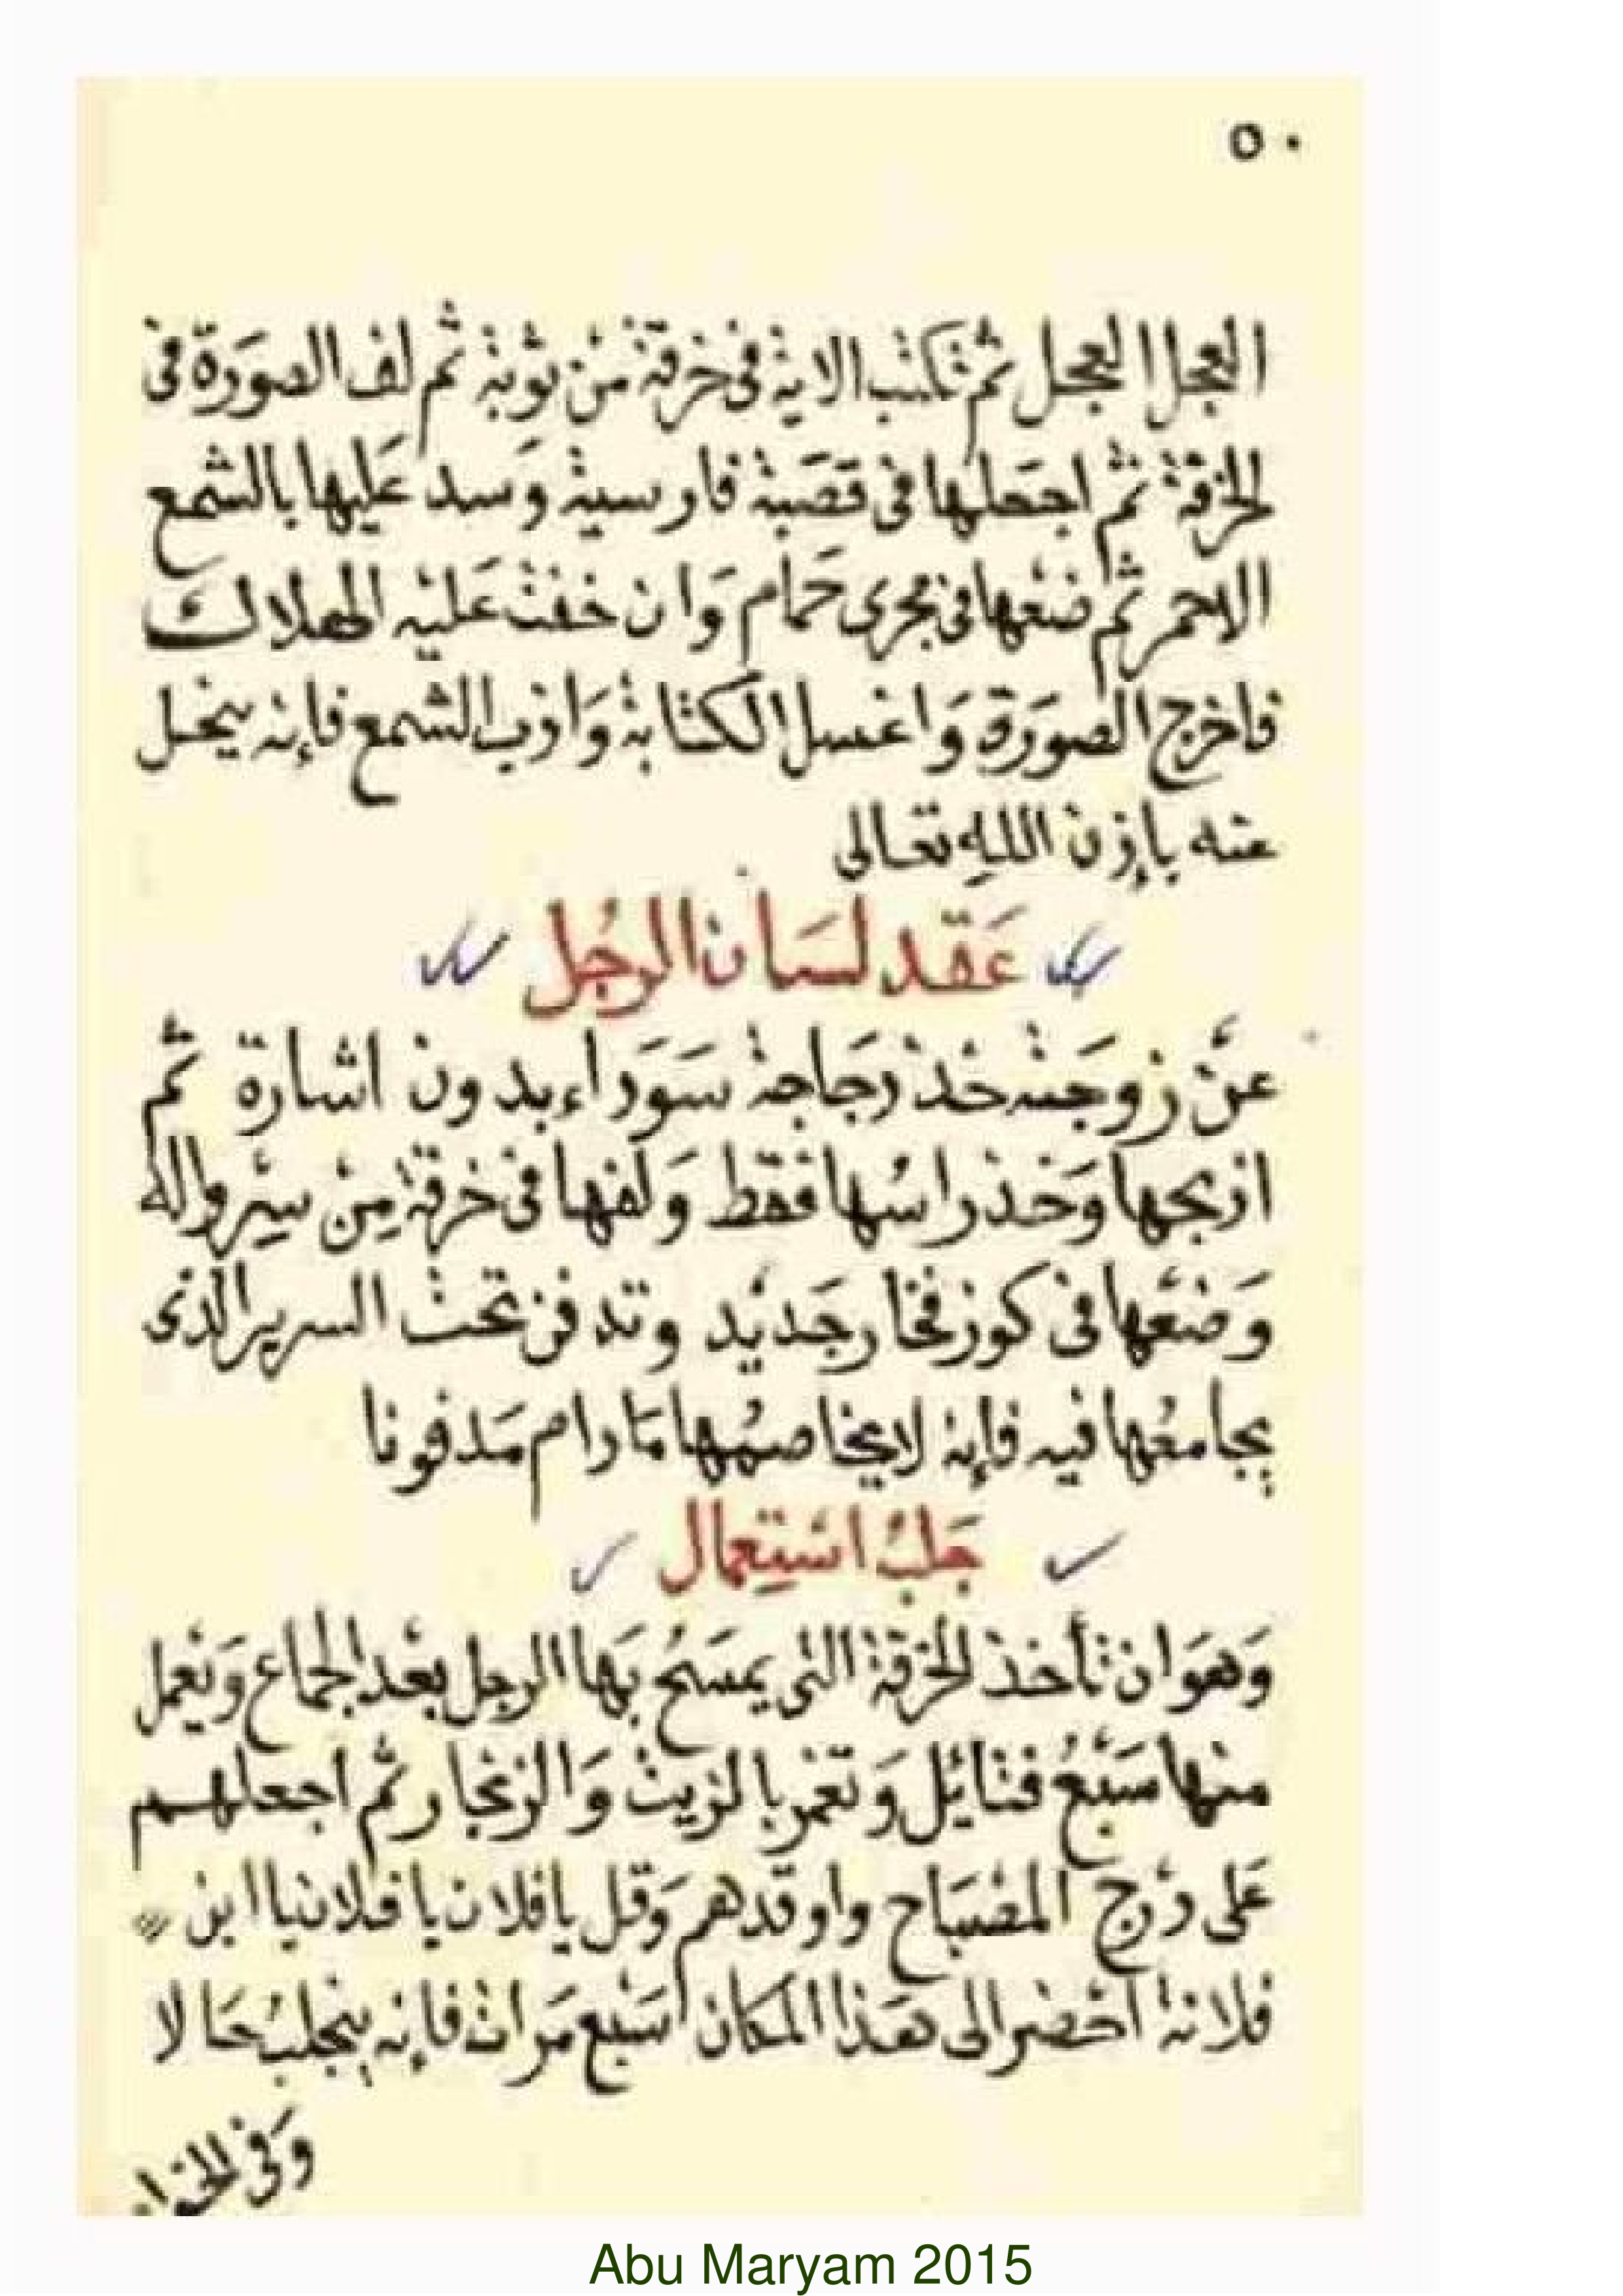 ٥٠
العجل العجل ثم تكتب الاية فى خرقة من ثوبة ثم لف الصورة فى
الخرقة ثم اجعلها فى قصبة فارسية وسد عليها بالشمع
الاحمر ثم ضعها فى مجرى حمام وان خفت عليه الهلاك
فاخرج الصورة واغسل الكتابة واذب الشمع فإنه ينحل
عنه بإذن الله تعالى
عقد لسان الرجل
عن زوجته خذ دجاجة سوداء بدون اشارة ثم
اذبحها وخذ راسها فقط ولفها فى خرقة من سرواله
وضعها فى كوز فخار جديد وتدفن تحت السرير الذى
يجامعها فيه فإنه لا يخاصمها مادام مدفونا
جلب استعمال
وهو ان تأخذ الخرقة التى يمسح بها الرجل بعد الجماع وتعمل
منها سبع فتائل وتغمر بالزيت والزنجار ثم اجعلهم
على درج المصباح واوقدهم وقل يا فلان يا فلان يا ابن
فلانة احضر الى هذا المكان سبع مرات فإنه ينجلب حالا
وفى
Abu Maryam 2015